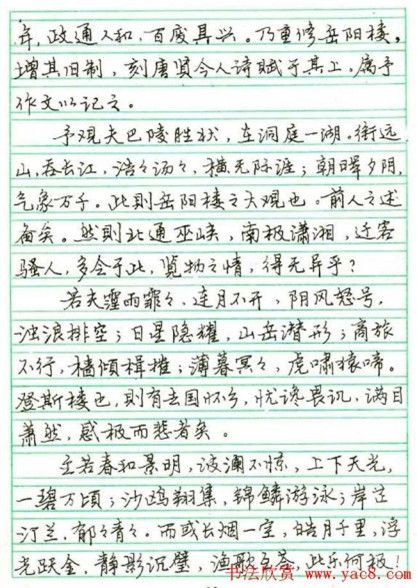 年，政通人和，百废具兴。乃重修岳阳楼，
增其旧制，刻唐贤今人诗赋于其上，属予
作文以记之。
予观夫巴陵胜状，在洞庭一湖。衔远
山，吞长江，浩々汤々，横无际涯；朝晖夕阴，
气象万千。此则岳阳楼之大观也。前人之述
备矣。然则北通巫峡，南极潇湘，迁客
骚人，多会于此，览物之情，得无异乎？
若夫霪雨霏々，连月不开，阴风怒号，
浊浪排空；日星隐耀，山岳潜形；商旅
不行，樯倾楫摧；薄暮冥々，虎啸猿啼。
登斯楼也，则有去国怀乡，忧谗畏讥，满目
萧然，感极而悲者矣。
至若春和景明，波澜不惊，上下天光，
一碧万顷；沙鸥翔集，锦鳞游泳；岸芷
汀兰，郁々青々。而或长烟一空，皓月千里，浮
光跃金，静影沉璧，渔歌互答，此乐何极！
书法欣赏 www.yac8.com